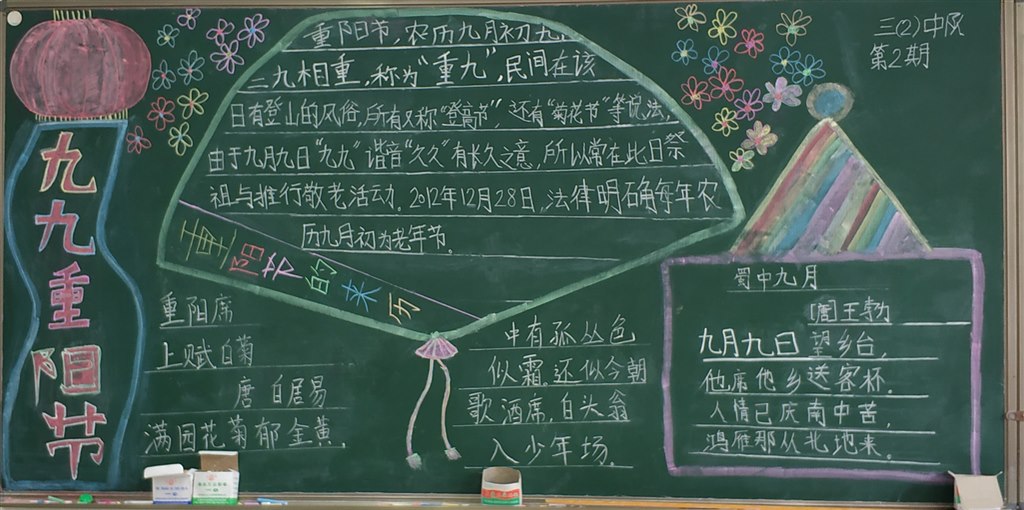 三(2)中队
第2期
九九重阳节
重阳节,农历九月初九
二九相重,称为"重九",民间在该
日有登山的风俗,所有又称"登高节",还有"菊花节"等说法,
由于九月九日"九九"谐音"久久"有长久之意,所以常在此日祭
祖与推行敬老活动。2012年12月28日,法律明确每年农
历九月初为老年节。
重阳节的来历
重阳席
上赋白菊
唐 白居易
满园花菊郁金黄,
中有孤丛色
似霜。还似今朝
歌酒席,白头翁
入少年场。
蜀中九月
王勃
九月九日望乡台,
他席他乡送客杯。
人情已厌南中苦,
鸿雁那从北地来。